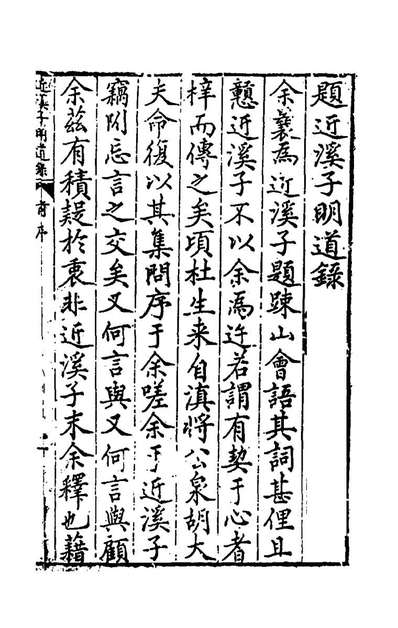 題近溪子明道錄
余曩為近溪子題踈山會語其詞甚俚且
戇近溪子不以余為迕若謂有契于心者
梓而傳之矣頃杜生来自滇將公泉胡大
夫命復以其集問序于余嗟余于近溪子
竊附忘言之交矣又何言與又何言與顧
余兹有積疑於衷非近溪子末余釋也藉
近溪子明道錄
序